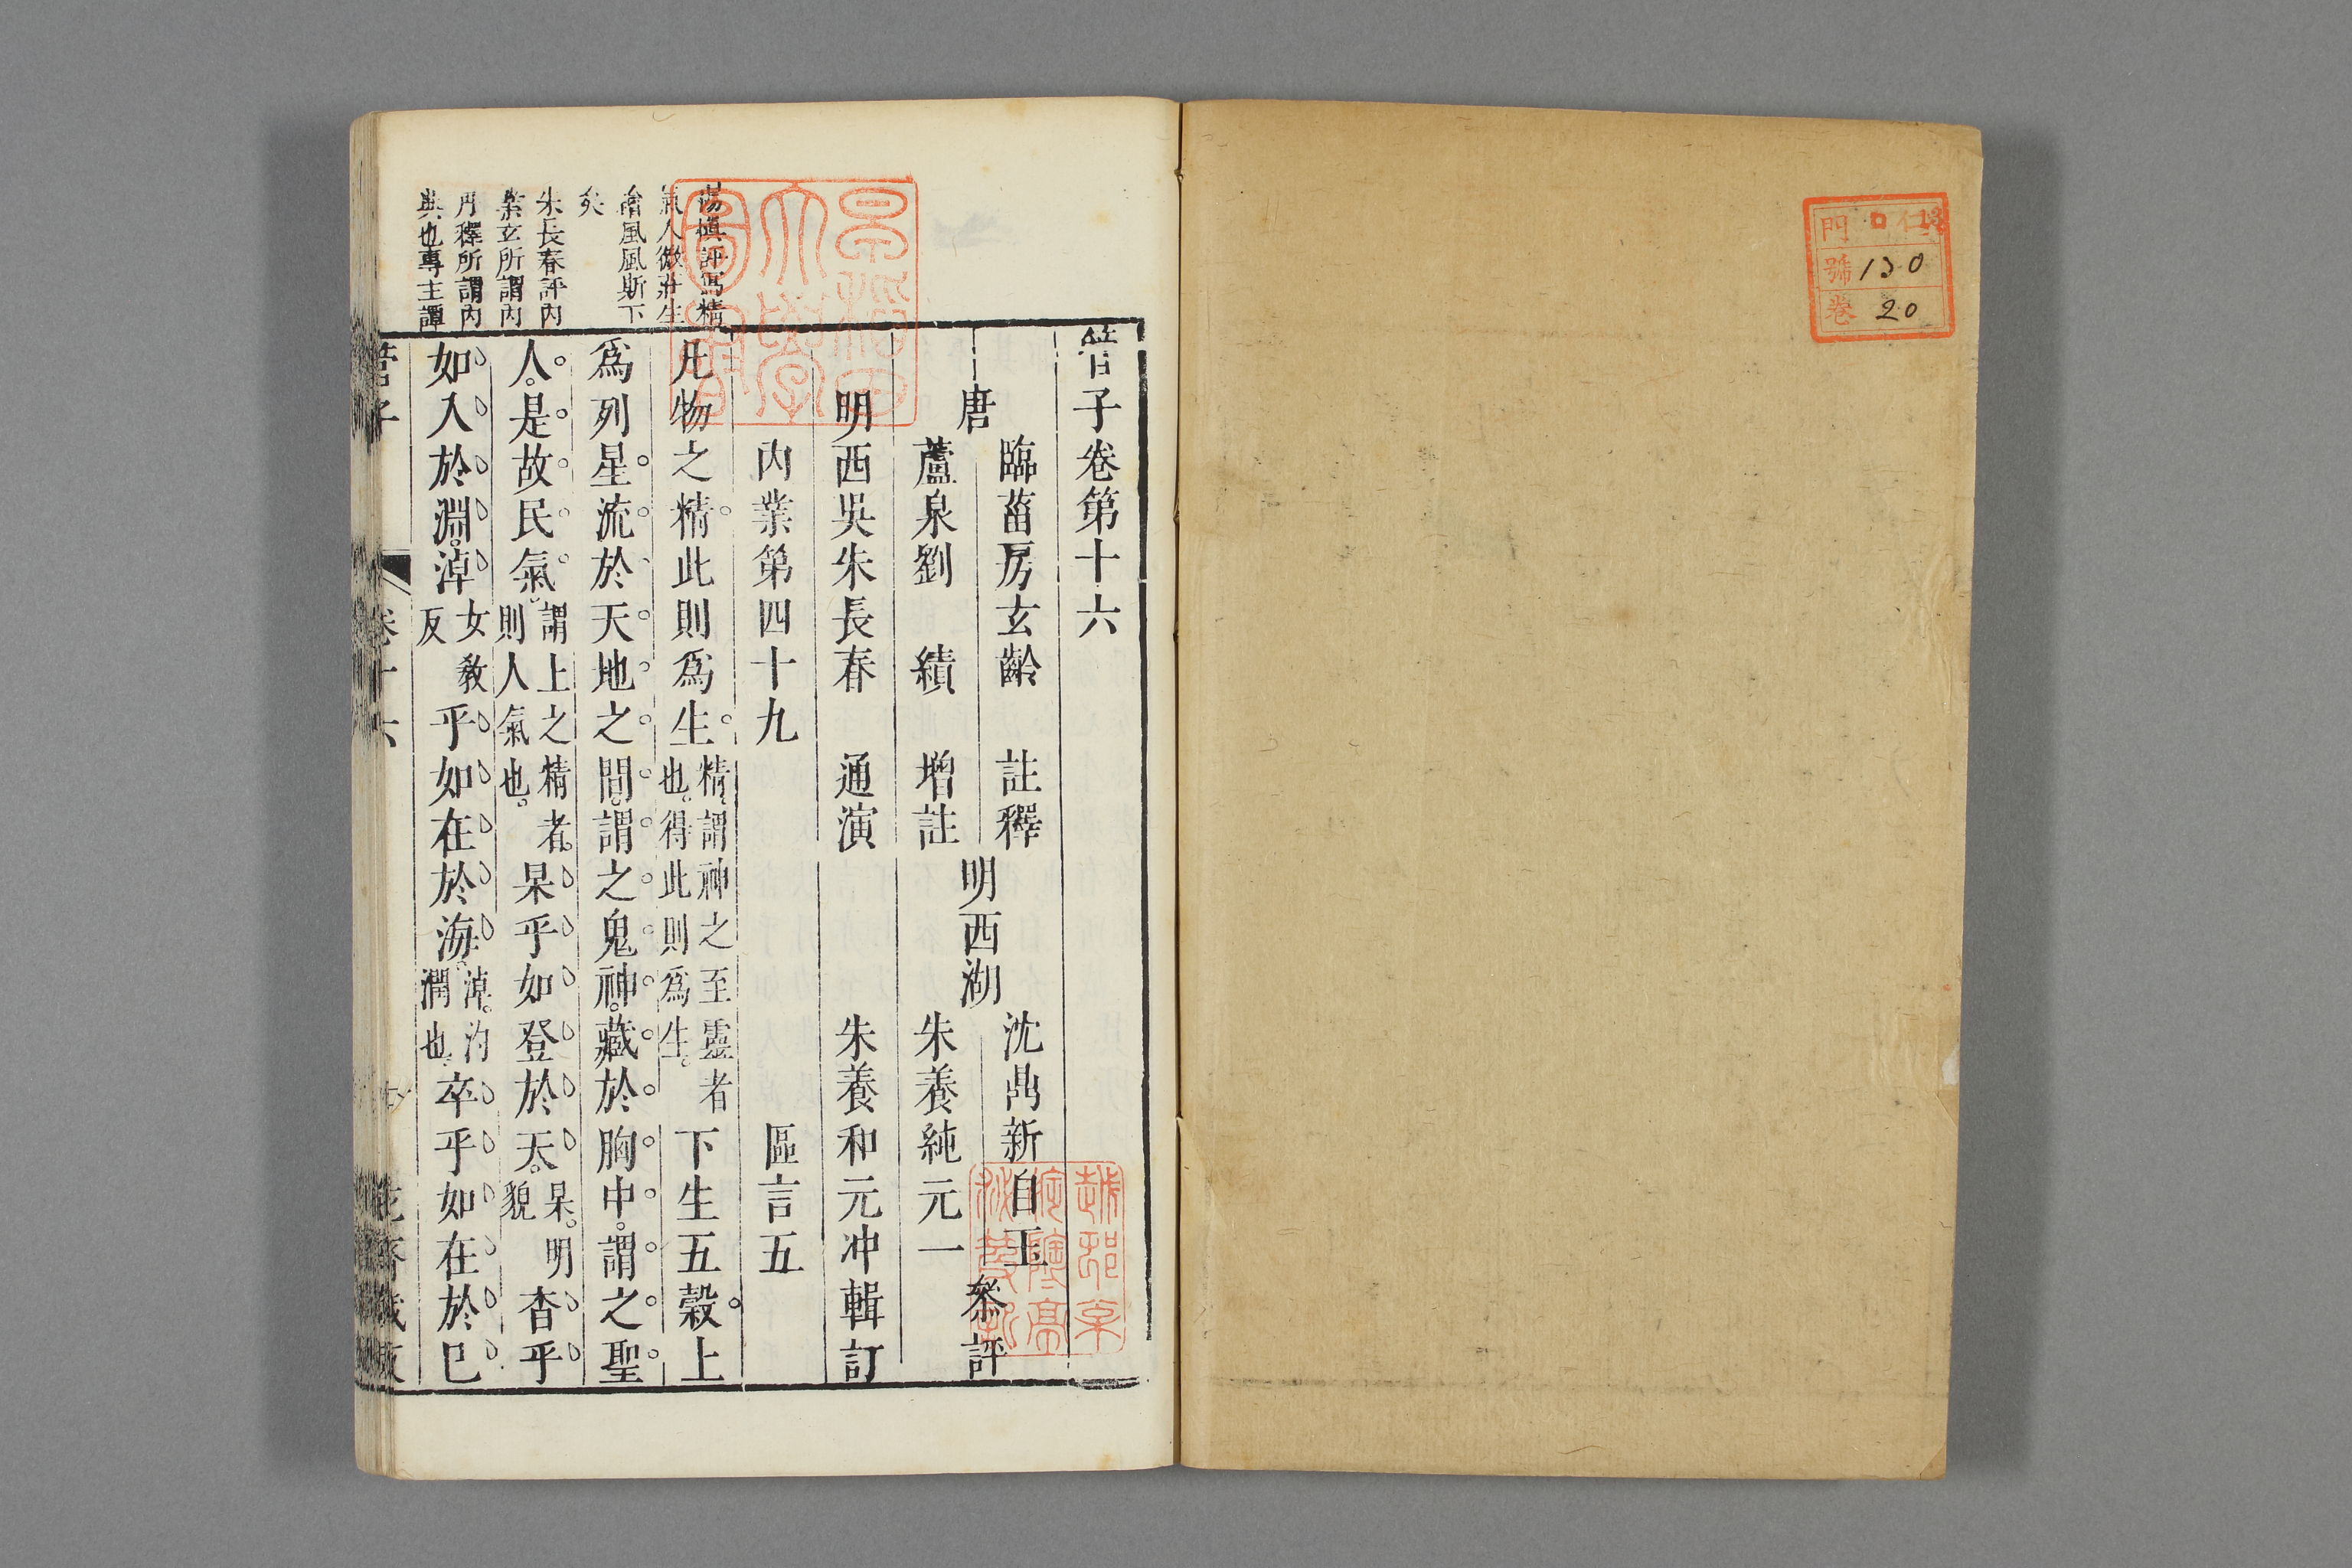 仁13
門
號 130
卷 20
管子卷第十六
唐
臨菑房玄齡 註釋
蘆泉劉 績 增註
明西湖
沈鼎新自玉
朱養純元一
參評
明西吳朱長春 通演
朱養和元冲輯訂
內業第四十九 區言五
凡物之精此則爲生
精謂神之至靈者
也得此則爲生
下生五穀上
爲列星流於天地之間謂之鬼神藏於胸中謂之聖
人是故民氣
謂上之精者
則人氣也
杲乎如登於天
杲明
貌
杳乎
如入於淵淖
女敎
反
乎如在於海
淖汋
潤也
卒乎如在於己
管子
卷十六
楊愼評寫精
氣入微莊生
論風風斯下
矣
朱長春評內
業玄所謂內
丹釋所謂內
典也專主譚
早稻田大學圖書